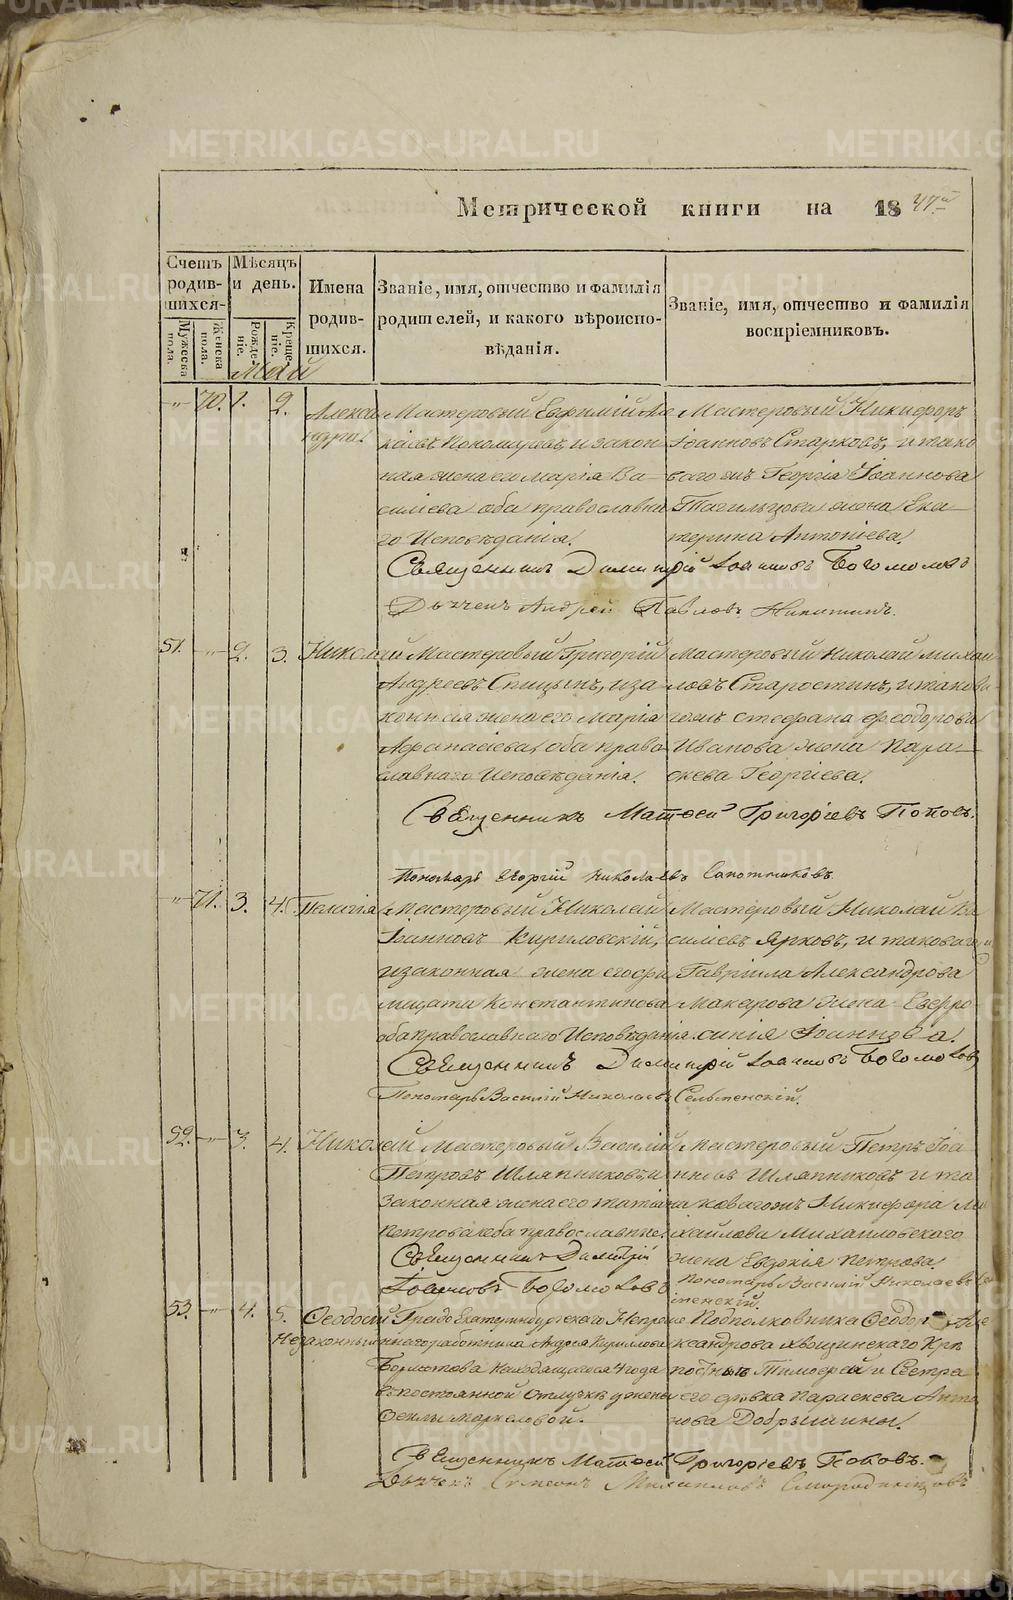 Метрической книги на 1847й
Счетъ родившихся
Мѣсяцъ и день.
Имена родившихся.
Званіе, имя, отчество и фамилія родителей, и какого вѣроисповѣданія.
Званіе, имя, отчество и фамилія воспріемниковъ.
Мужеска пола.
Женска пола.
Рожденіе.
Крещеніе.
Май
-"- 70. 1. 2. Александра.
Мастеровый Евфимій
Пономаревъ, и закон
ная жена его Марія Ва
силіева, оба православна
го Исповѣданія.
Мастеровый Никифоръ
Іоанновъ Старковъ, и тако
ваго жъ Георгія Іоаннова
Тагильцова жена Ека
терина Антоніева.
Священникъ Димитрій Іоанновъ Богомоловъ
Дьячекъ Андрей Павловъ Никитинъ.
51. -"- 2. 3. Николай
Мастеровый Григорій
Андреевъ Спицынъ, и за
конная жена его Марія
Афанасіева, оба право
славнаго Исповѣданія.
Мастеровый Николай Михаи
ловъ Старостинъ, и таков
гожъ Стефана Феодорова
Иванова жена Пара
скева Георгіева.
Священникъ Матѳей Григоріевъ Поповъ.
Пономарь Георгій Николаевъ Сапожниковъ
-"- 71. 3. 4. Пелагія
Мастеровый Николай
Іоанновъ Кириловскій,
и законная жена его Фи
Константинова
оба православнаго Исповѣданія.
Мастеровый Николай Ва
силіевъ Ярковъ, и таковаго
Гавріила Александрова
Макарова жена Евфро
синія Іоаннова.
Священникъ Димитрій Іоанновъ Богомоловъ
Пономарь Василій Николаевъ Сельменскій.
52. -"- 3. 4. Николай
Мастеровый Василій
Петровъ Шляпниковъ, и
законная жена его Татіа
на Петрова оба православные.
Мастеровый Петръ Іоа
нновъ Шляпниковъ и та
коваго жъ Никифора Ми
хайлова Михайловскаго
жена Евдокія Петрова.
Священникъ Димитрій
Іоанновъ Богомоловъ
Пономарь Василій Николаевъ Се
льменскій.
53. -"- 4. 5. Феодосій
Незаконный
Града Екатеринбургскаго Непреме
ннаго работника Андрея Кирилова
Бормотова Находящагося 4 года
въ постоянной отлучкѣ у жены
Феклы Маркеловой.
Подполковника Феодора Але
ксандрова Хвощинскаго Крѣ
постный Тимофей и Сестра
его дѣвка Параскева Анто
нова Добрынины.
Священникъ Матѳей Григоріевъ Поповъ.
Дьячекъ Симеонъ Михаиловъ Смородинцовъ
METRIKI.GASO-URAL.RU